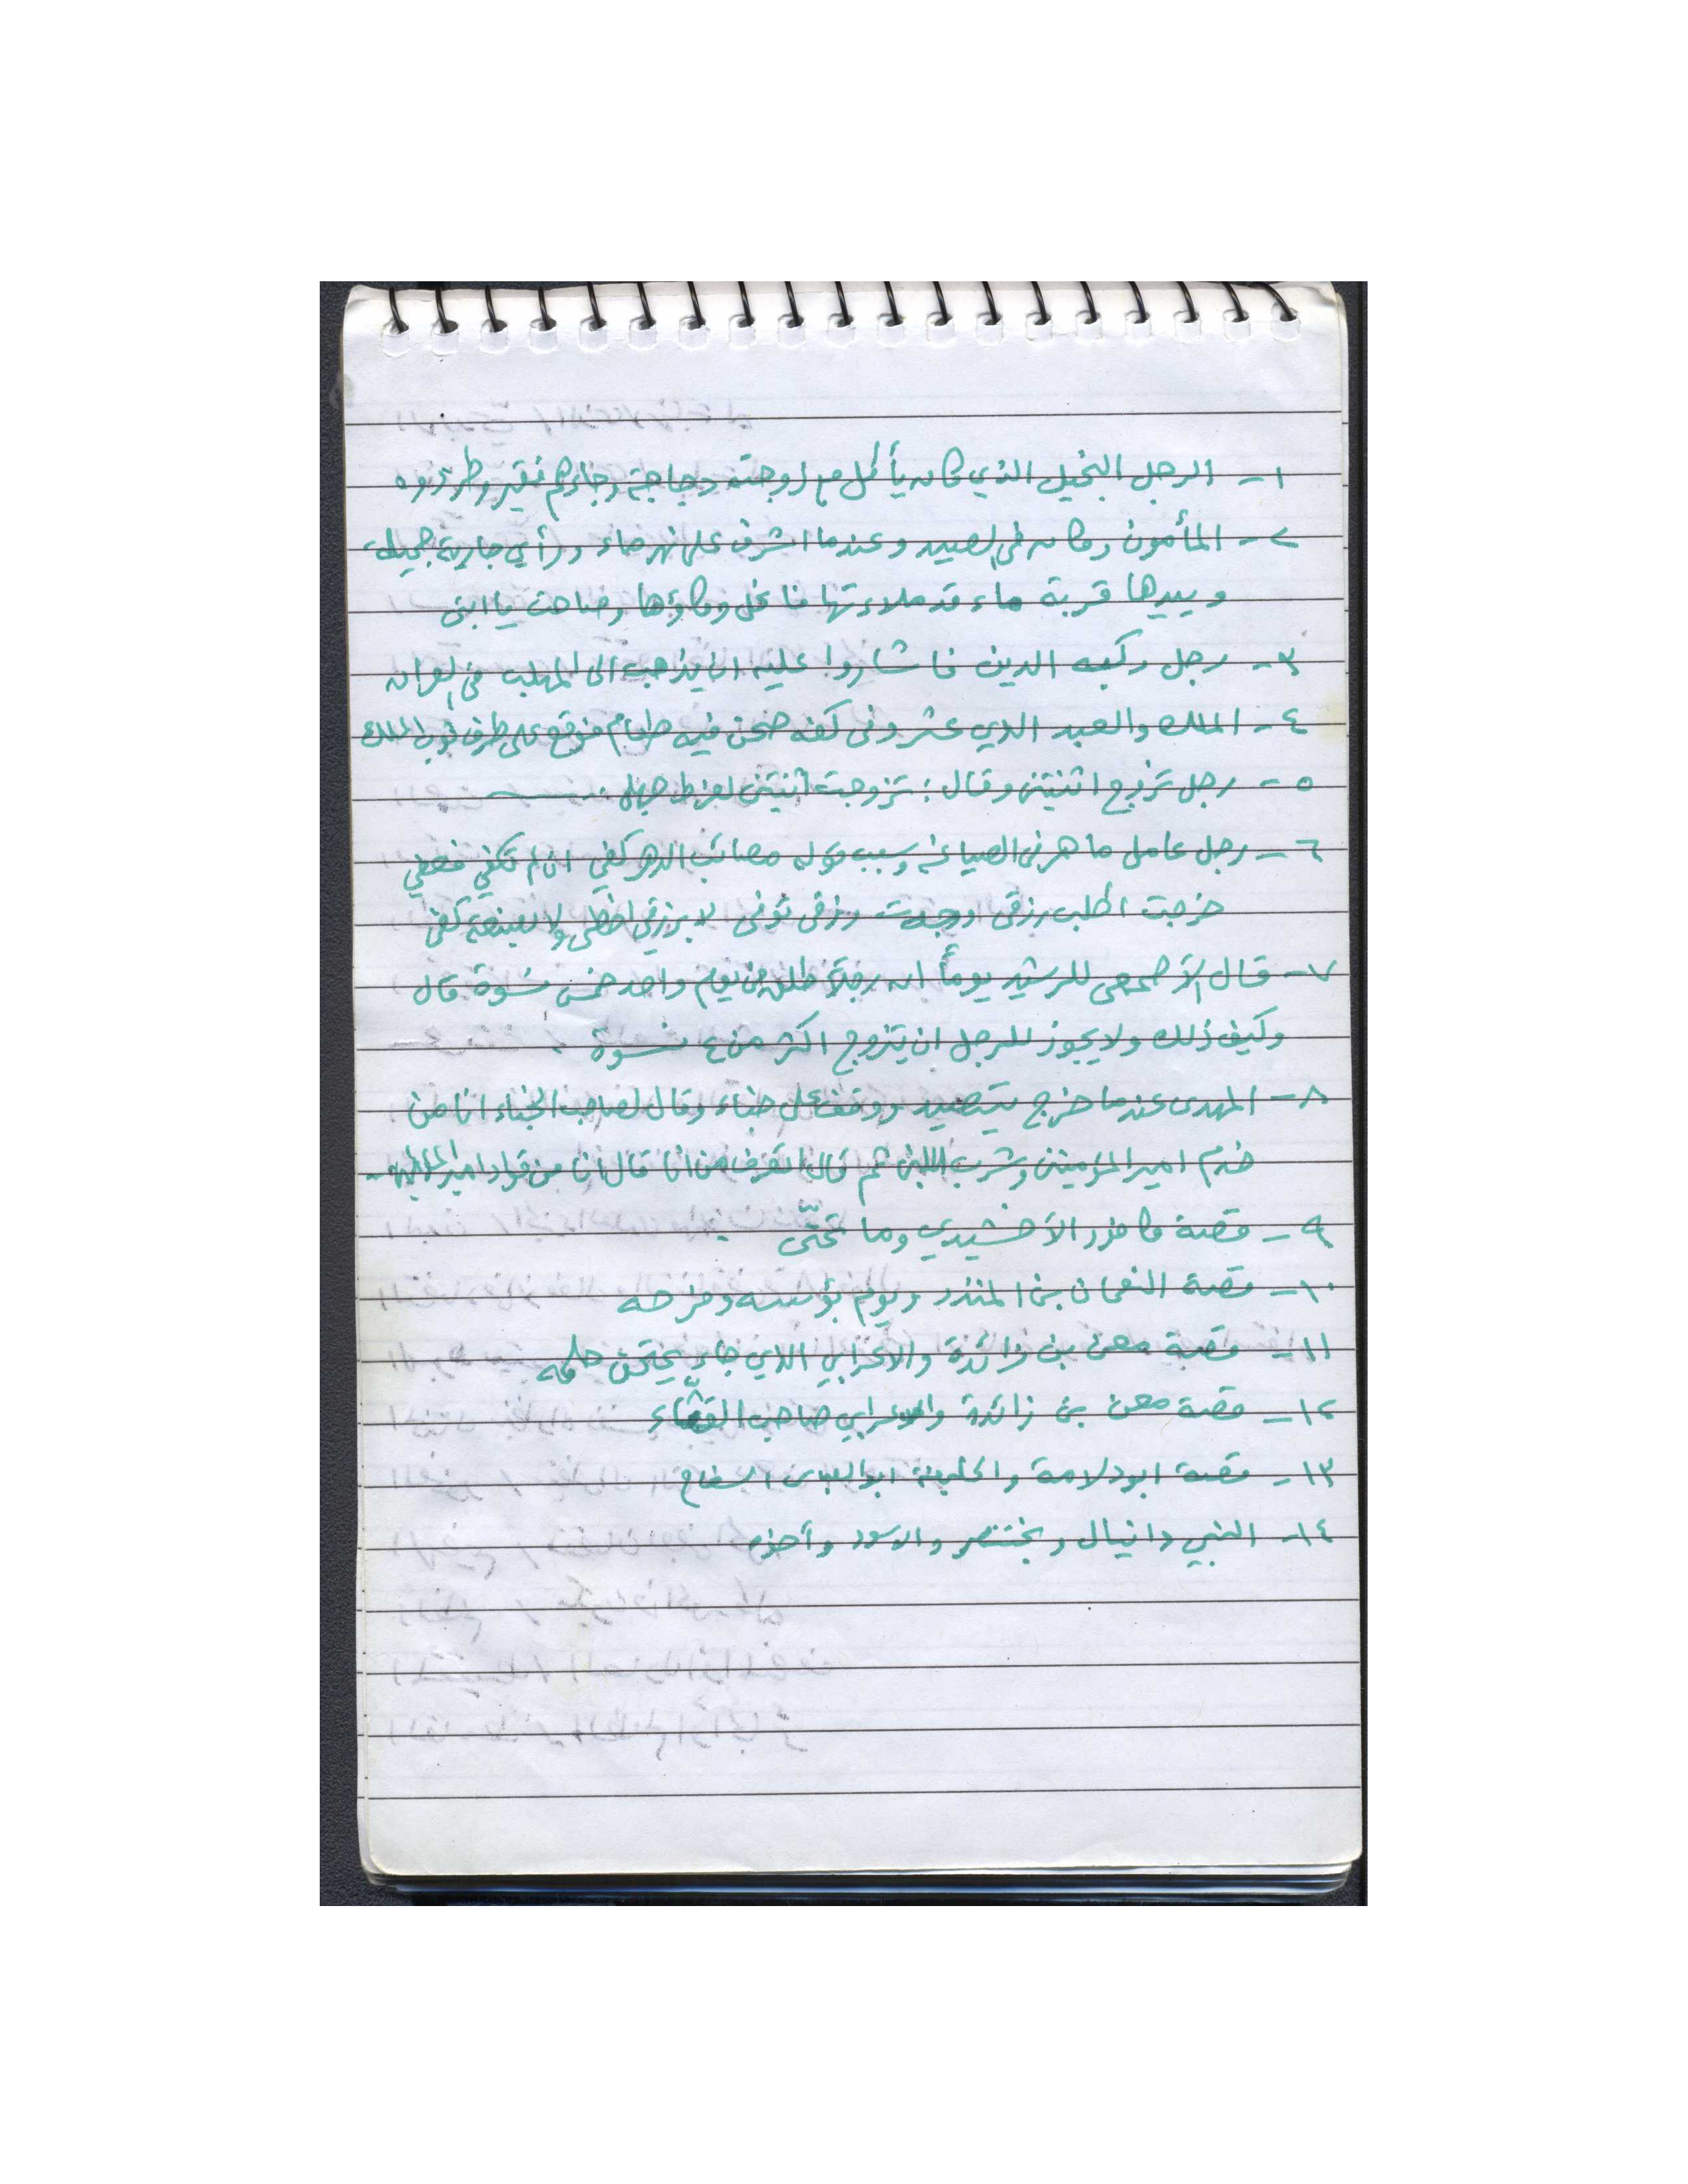 ١- الرجل البخيل الذي كان يأكل مع زوجته دجاجة وجاءهم فقير وطردوه
٢- المأمون وكان في الصيد وعندما اشرف على نهر ماء ورأى جارية جميلة
وبيدها قربة ماء قد ملاءتها فانحل وكاؤها وصاحت يا ابتي
٣- رجل ركبه الدين فاشاروا عليه ان يذهب الى المهلب في العراق
٤- الملك والعبد الذي عثر وفي كفه صحن فيه طعام فوقع على طرف ثوب الملك
٥- رجل تزوج اثنتين وقال: تزوجت اثنتين لفرط جهلي
٦- رجل عامل ماهر في الصياغة وسبب قوله مصائب الدهر كفي ان لم تكفي فعفي
خرجت اطلب رزقي وجدت رزقي توفى لا برزقي احظى ولا بصنعة كفي
٧- قال الأصمعي للرشيد يوماً ان رجلاً طلق في يوم واحد خمس نسوة قال
وكيف ذلك ولا يجوز للرجل ان يتزوج اكثر من ٤ نسوة
٨- المهدى عندما خرج يتصيد ووقف على خباء وقال لصاحب الخباء انا من
خدم امير المؤمنين وشرب اللبن ثم قال اتعرف من انا قال انا من قواد امير المؤمنين
٩- قصة كافور الأخشيدي وما تمنّى
١٠- قصة النعمان بن المنذر ويوم بؤسه وفرحه
١١- قصة معن بن زائدة والاعرابي الذي جاء يمتحن حلمه
١٢- قصة معن بن زائدة والاعرابي صاحب القثّاء
١٣- قصة ابو دلامة والخليفة ابو العباس السفاح
١٤- النبي دانيال وبختنصر والاسود وأخوه